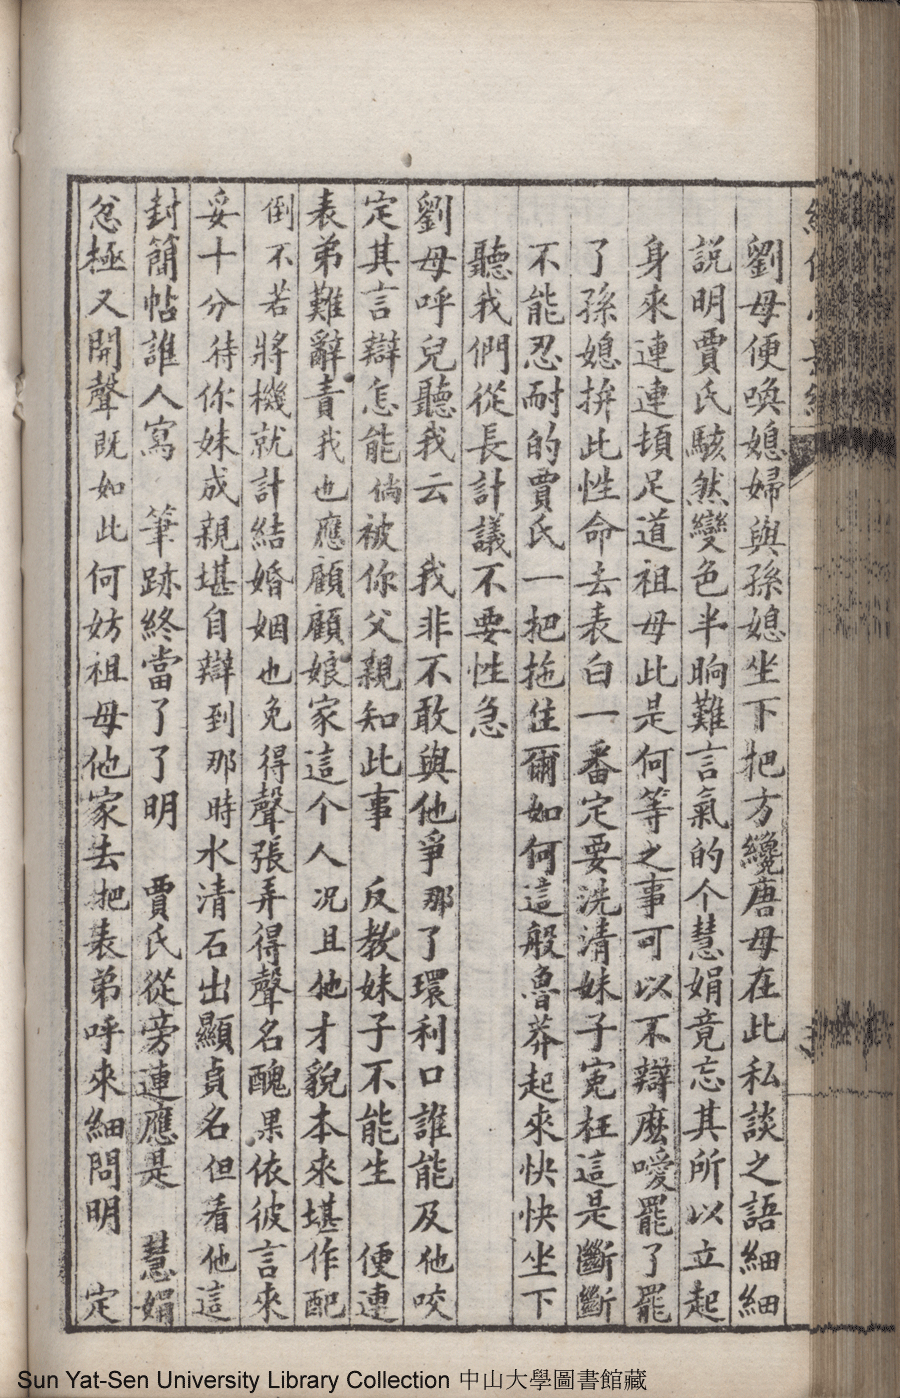 劉母便喚媳婦與孫媳坐下把方纔唐母在此私談之語細細
説明賈氏駭然變色半晌難言氣的个慧娟竟忘其所以立起
身來連連頓足道祖母此是何等之事可以不辯麽噯罷了罷
了孫媳拚此性命去表白一番定要洗清妹子寃枉這是斷斷
不能忍耐的賈氏一把拖住爾如何這般魯莽起來快快坐下
聽我們從長計議不要性急
劉母呼兒聽我云　我非不敢與他爭那了環利口誰能及他咬
定其言辯怎能倘被你父親知此事　反教妹子不能生　便連
表弟難辭責我也應顧顧娘家這个人况且他才貌本來堪作配
倒不若將機就計結婚姻也免得聲張弄得聲名醜果依彼言來
妥十分待你妹成親堪自辯到那時水清石出顯貞名但看他這
封簡帖誰人寫　筆跡終當了了明　賈氏從旁連應是　慧娟
忿極又開聲既如此何妨祖母他家去把表弟呼來細問明　定
Sun Yat-Sen University Library Collection 中山大學圖書館藏